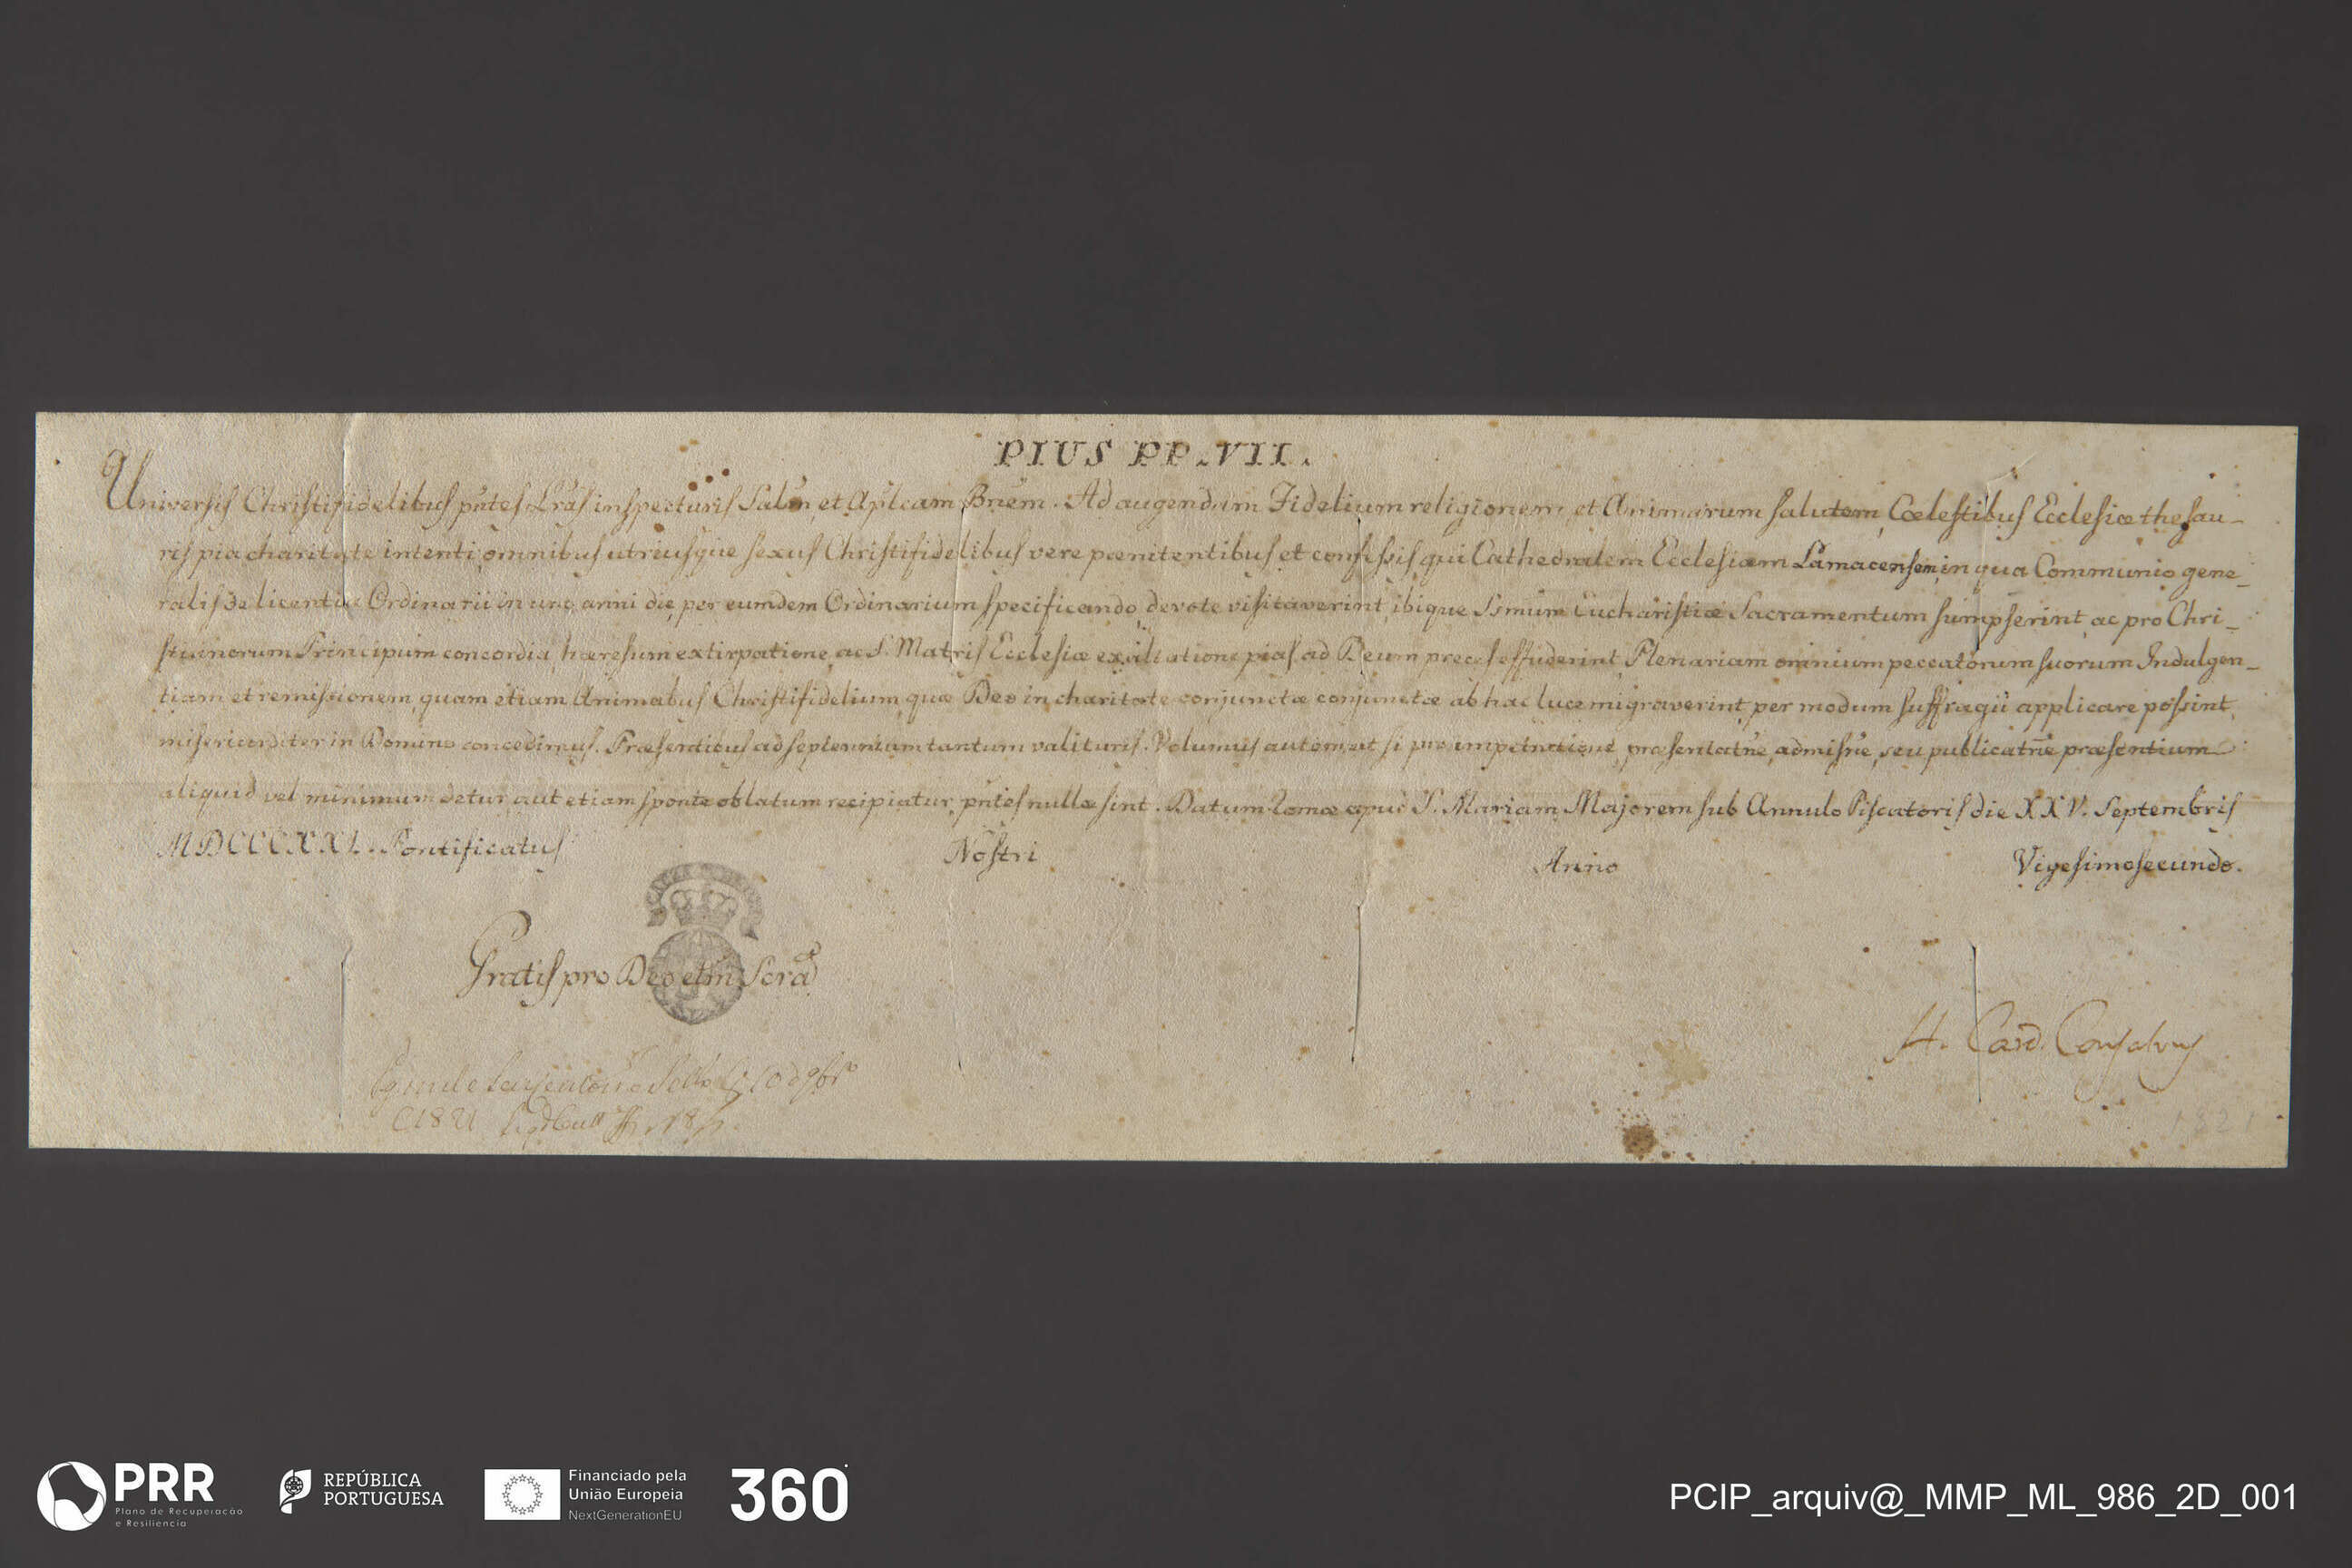 PIUS PP. VII.
Universis Christifidelibus pñtes Lrãs inspecturis Salm̃, et Aplcam Bnẽm. Ad augendam Fidelium religionem, et Animarum salutem, Cœlestibus Ecclesiæ thesau-
ris pia charitate intenti, omnibus utriusque sexus Christifidelibus vere pœnitentibus, et confessis, qui Cathedralem Ecclesiam Lamacensem, in qua Communio gene-
ralis de licentia Ordinarii in uno anni die, per eumdem Ordinarium specificando, devote visitaverint, ibique Ssmũm Eucharistiæ Sacramentum sumpserint, ac pro Chri-
stianorum Principum concordia, hæresum extirpatione, ac S. Matris Ecclesiæ exaltatione pias ad Deum preces effuderint, Plenariam omnium peccatorum suorum Indulgen-
tiam et remissionem, quam etiam Animabus Christifidelium, quæ Deo in charitate conjunctæ conjunctæ ab hac luce migraverint, per modum suffragii applicare possint,
misericorditer in Domino concedimus. Præsentibus ad septennium tantum valituris. Volumus autem, ut si pro impetratione, præsentatñe, admisñe, seu publicatñe præsentium
aliquid vel minimum detur, aut etiam sponte oblatum recipiatur, pñtes nullæ sint. Datum Romæ apud S. Mariam Majorem sub Annulo Piscatoris die XXV. Septembris
MDCCCXXI. Pontificatus Nostri Anno Vigesimosecundo.
Gratis pro Deo et in Scra
H. Card. Consalvus
1821
1821
PRR
Plano de Recuperação
e Resiliência
REPÚBLICA
PORTUGUESA
Financiado pela
União Europeia
NextGenerationEU
360
PCIP_arquiv@_MMP_ML_986_2D_001